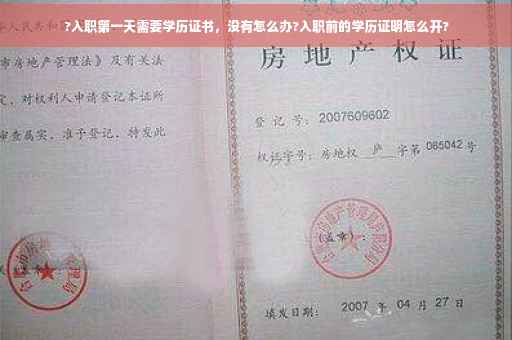 ?入职第一天需要学历证书，没有怎么办?入职前的学历证明怎么开?
人民共和
市房地产管理法》及有关法
定，对权利人申请登记本证所
审查属实，准予登记，特发此
房地产权证
登 记 号: 2007609602
权证字号: 房地权 庐 字第 085042 号
(盖章):
填发日期: 2007 年 04 月 27 日